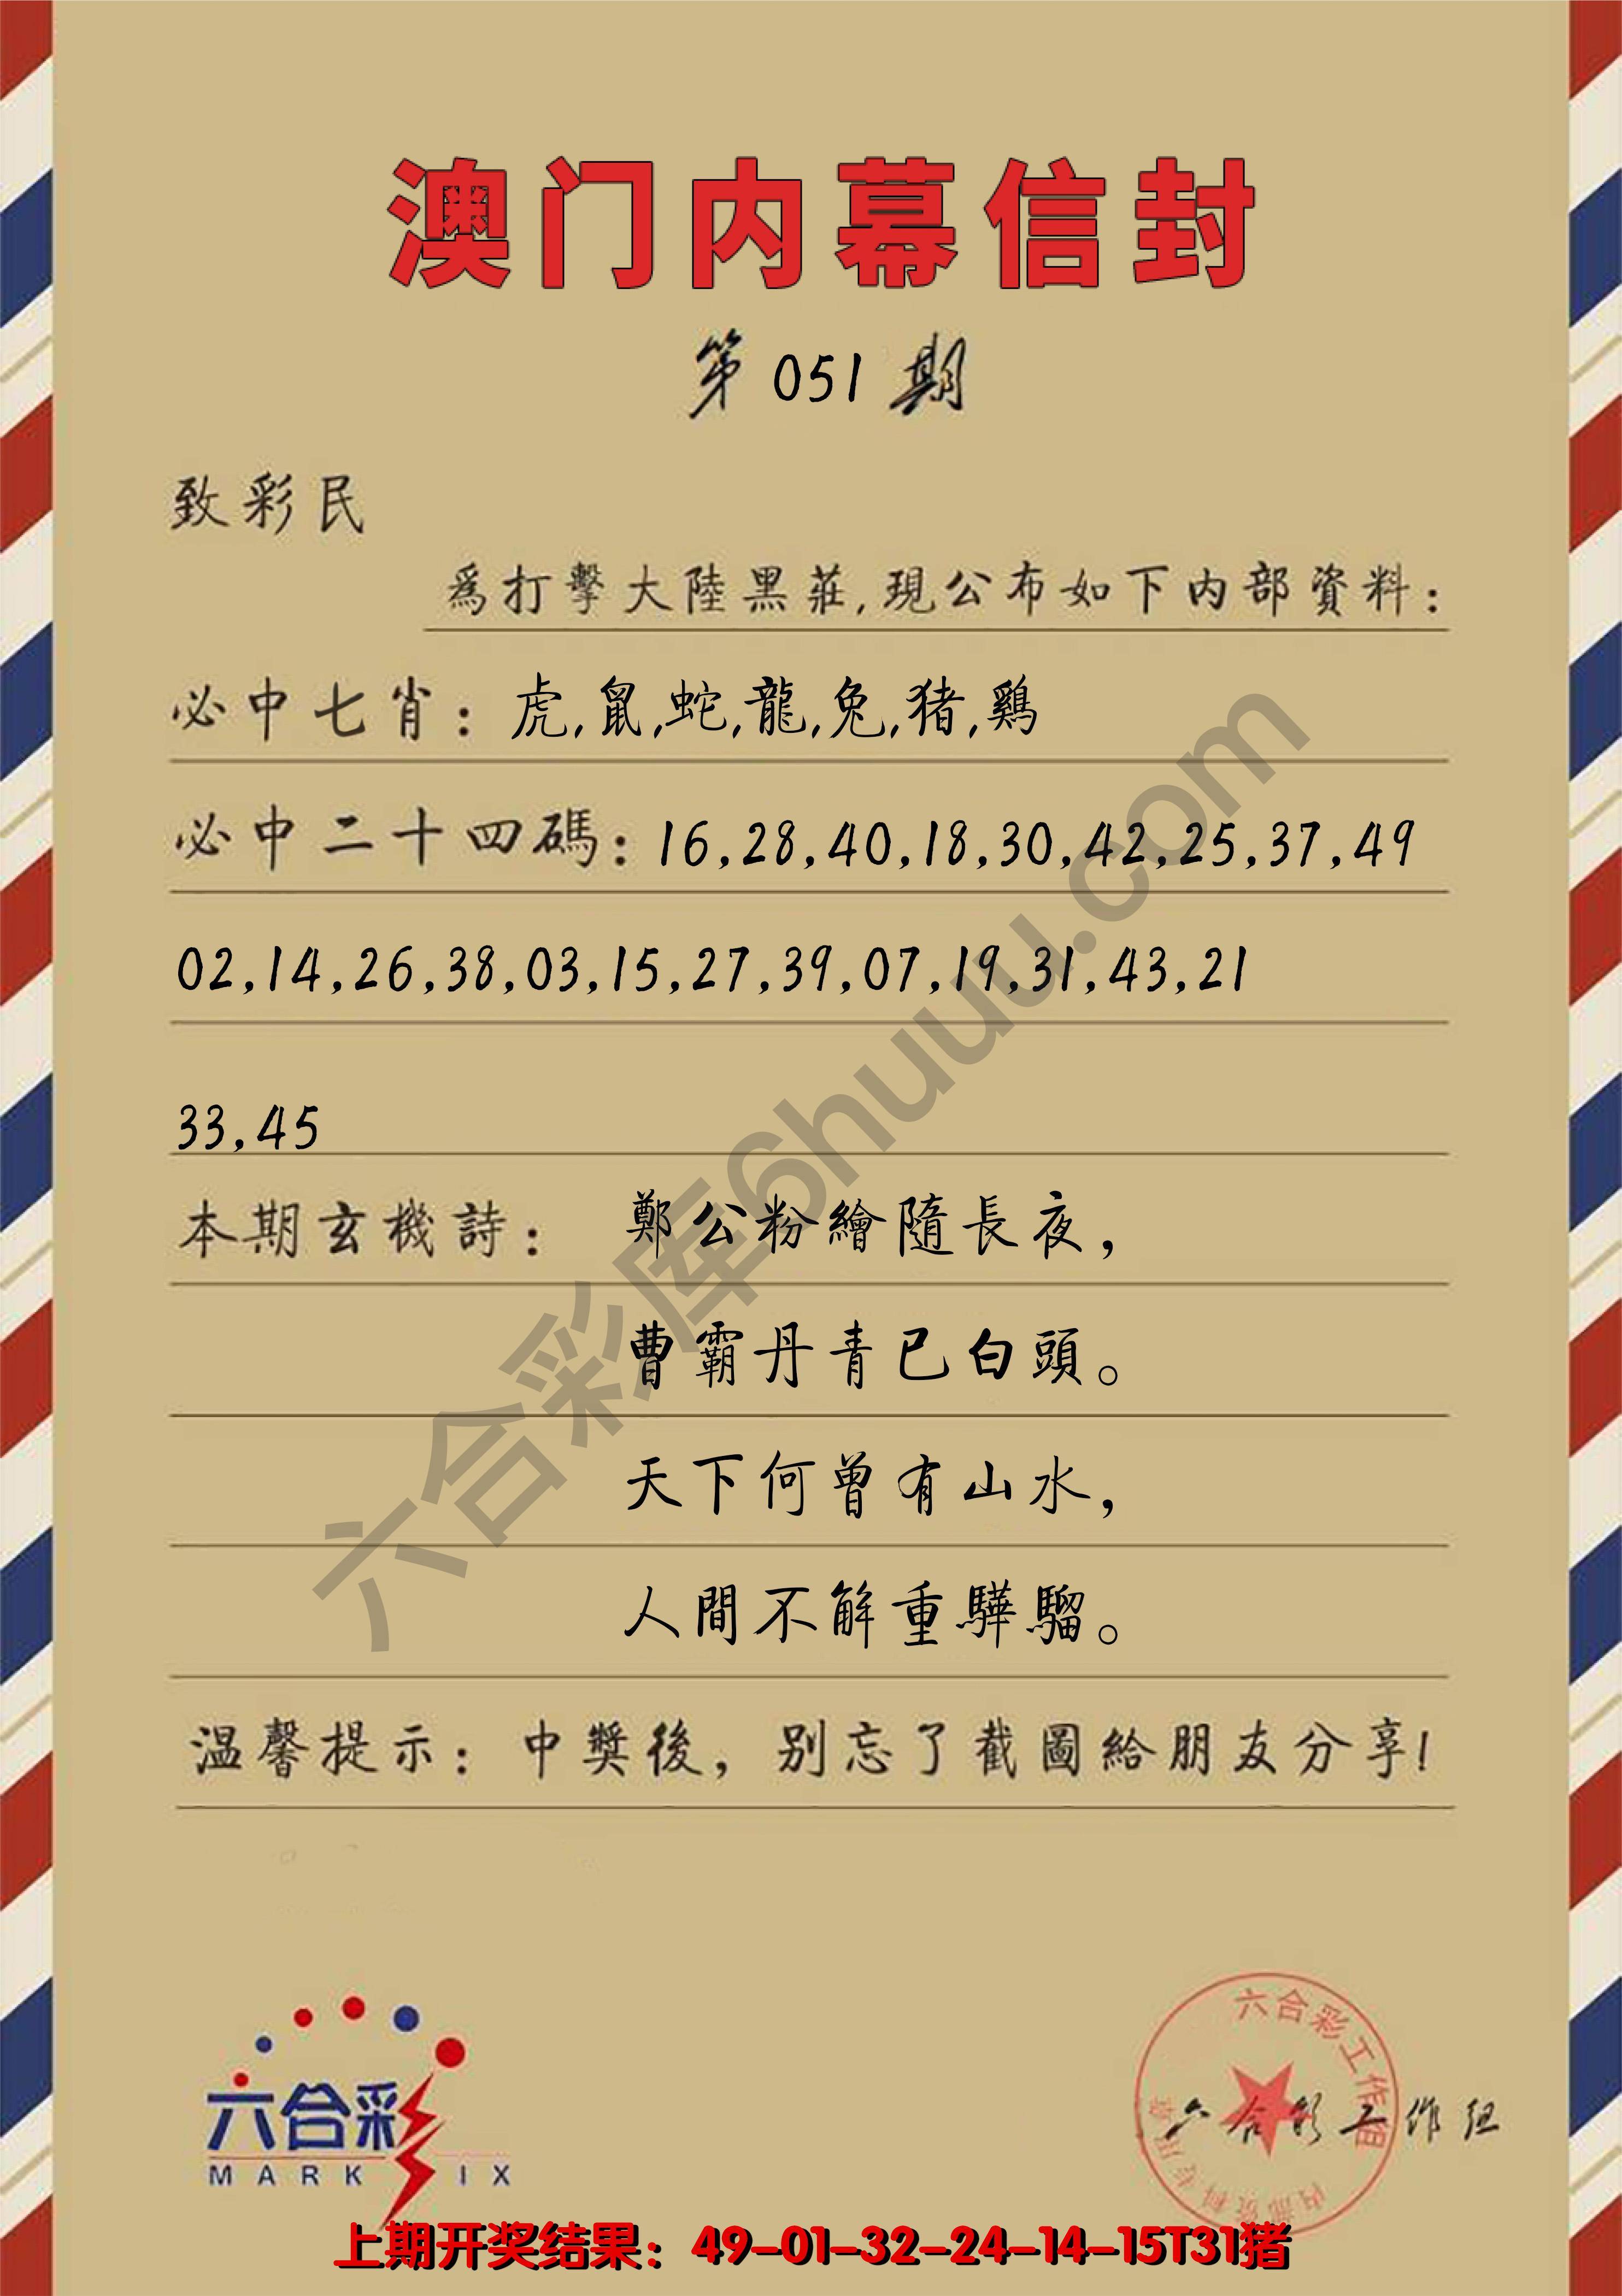 澳门内幕信封
第051期
致彩民
爲打擊大陸黑莊,現公布如下内部資料:
必中七肖:虎,鼠,蛇,龍,兔,猪,鷄
必中二十四碼:16,28,40,18,30,42,25,37,49
02,14,26,38,03,15,27,39,07,19,31,43,21
33,45
本期玄機詩: 鄭公粉繪隨長夜,
曹霸丹青已白頭。
天下何曾有山水,
人間不解重驊騮。
温馨提示:中獎後,别忘了截圖給朋友分享!
六合彩库6huuu.com
六合彩
MARK SIX
六合彩工作组
内部资料专用章
六合彩工作组
上期开奖结果:49-01-32-24-14-15T31猪